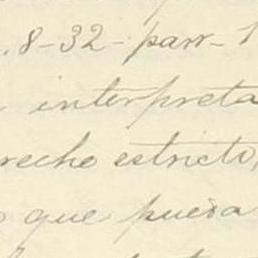 . 8-32- parr- 1
interpreta
recho estricto,
que pueda